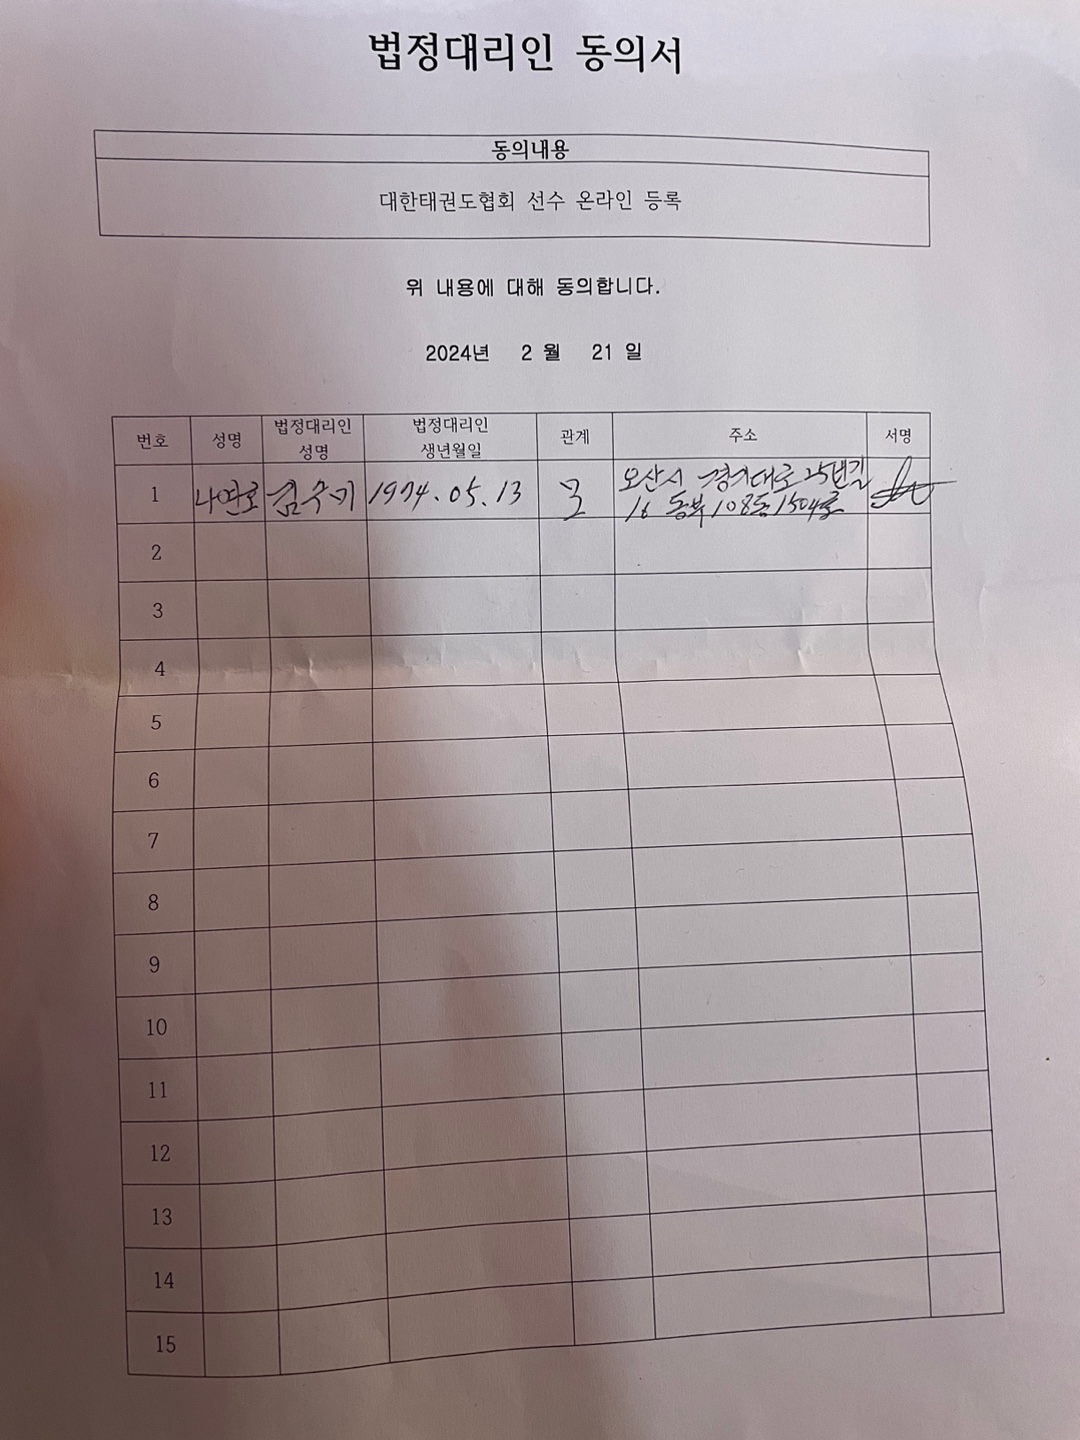 법정대리인 동의서
동의내용
대한태권도협회 선수 온라인 등록
위 내용에 대해 동의합니다.
2024년 2 월 21 일
번호 성명 법정대리인 성명 법정대리인 생년월일 관계 주소 서명
1 나연호 김수기 1974.05.13 모 오산시 경기대로 25번길
16 동부 108동 1504호
2
3
4
5
6
7
8
9
10
11
12
13
14
15